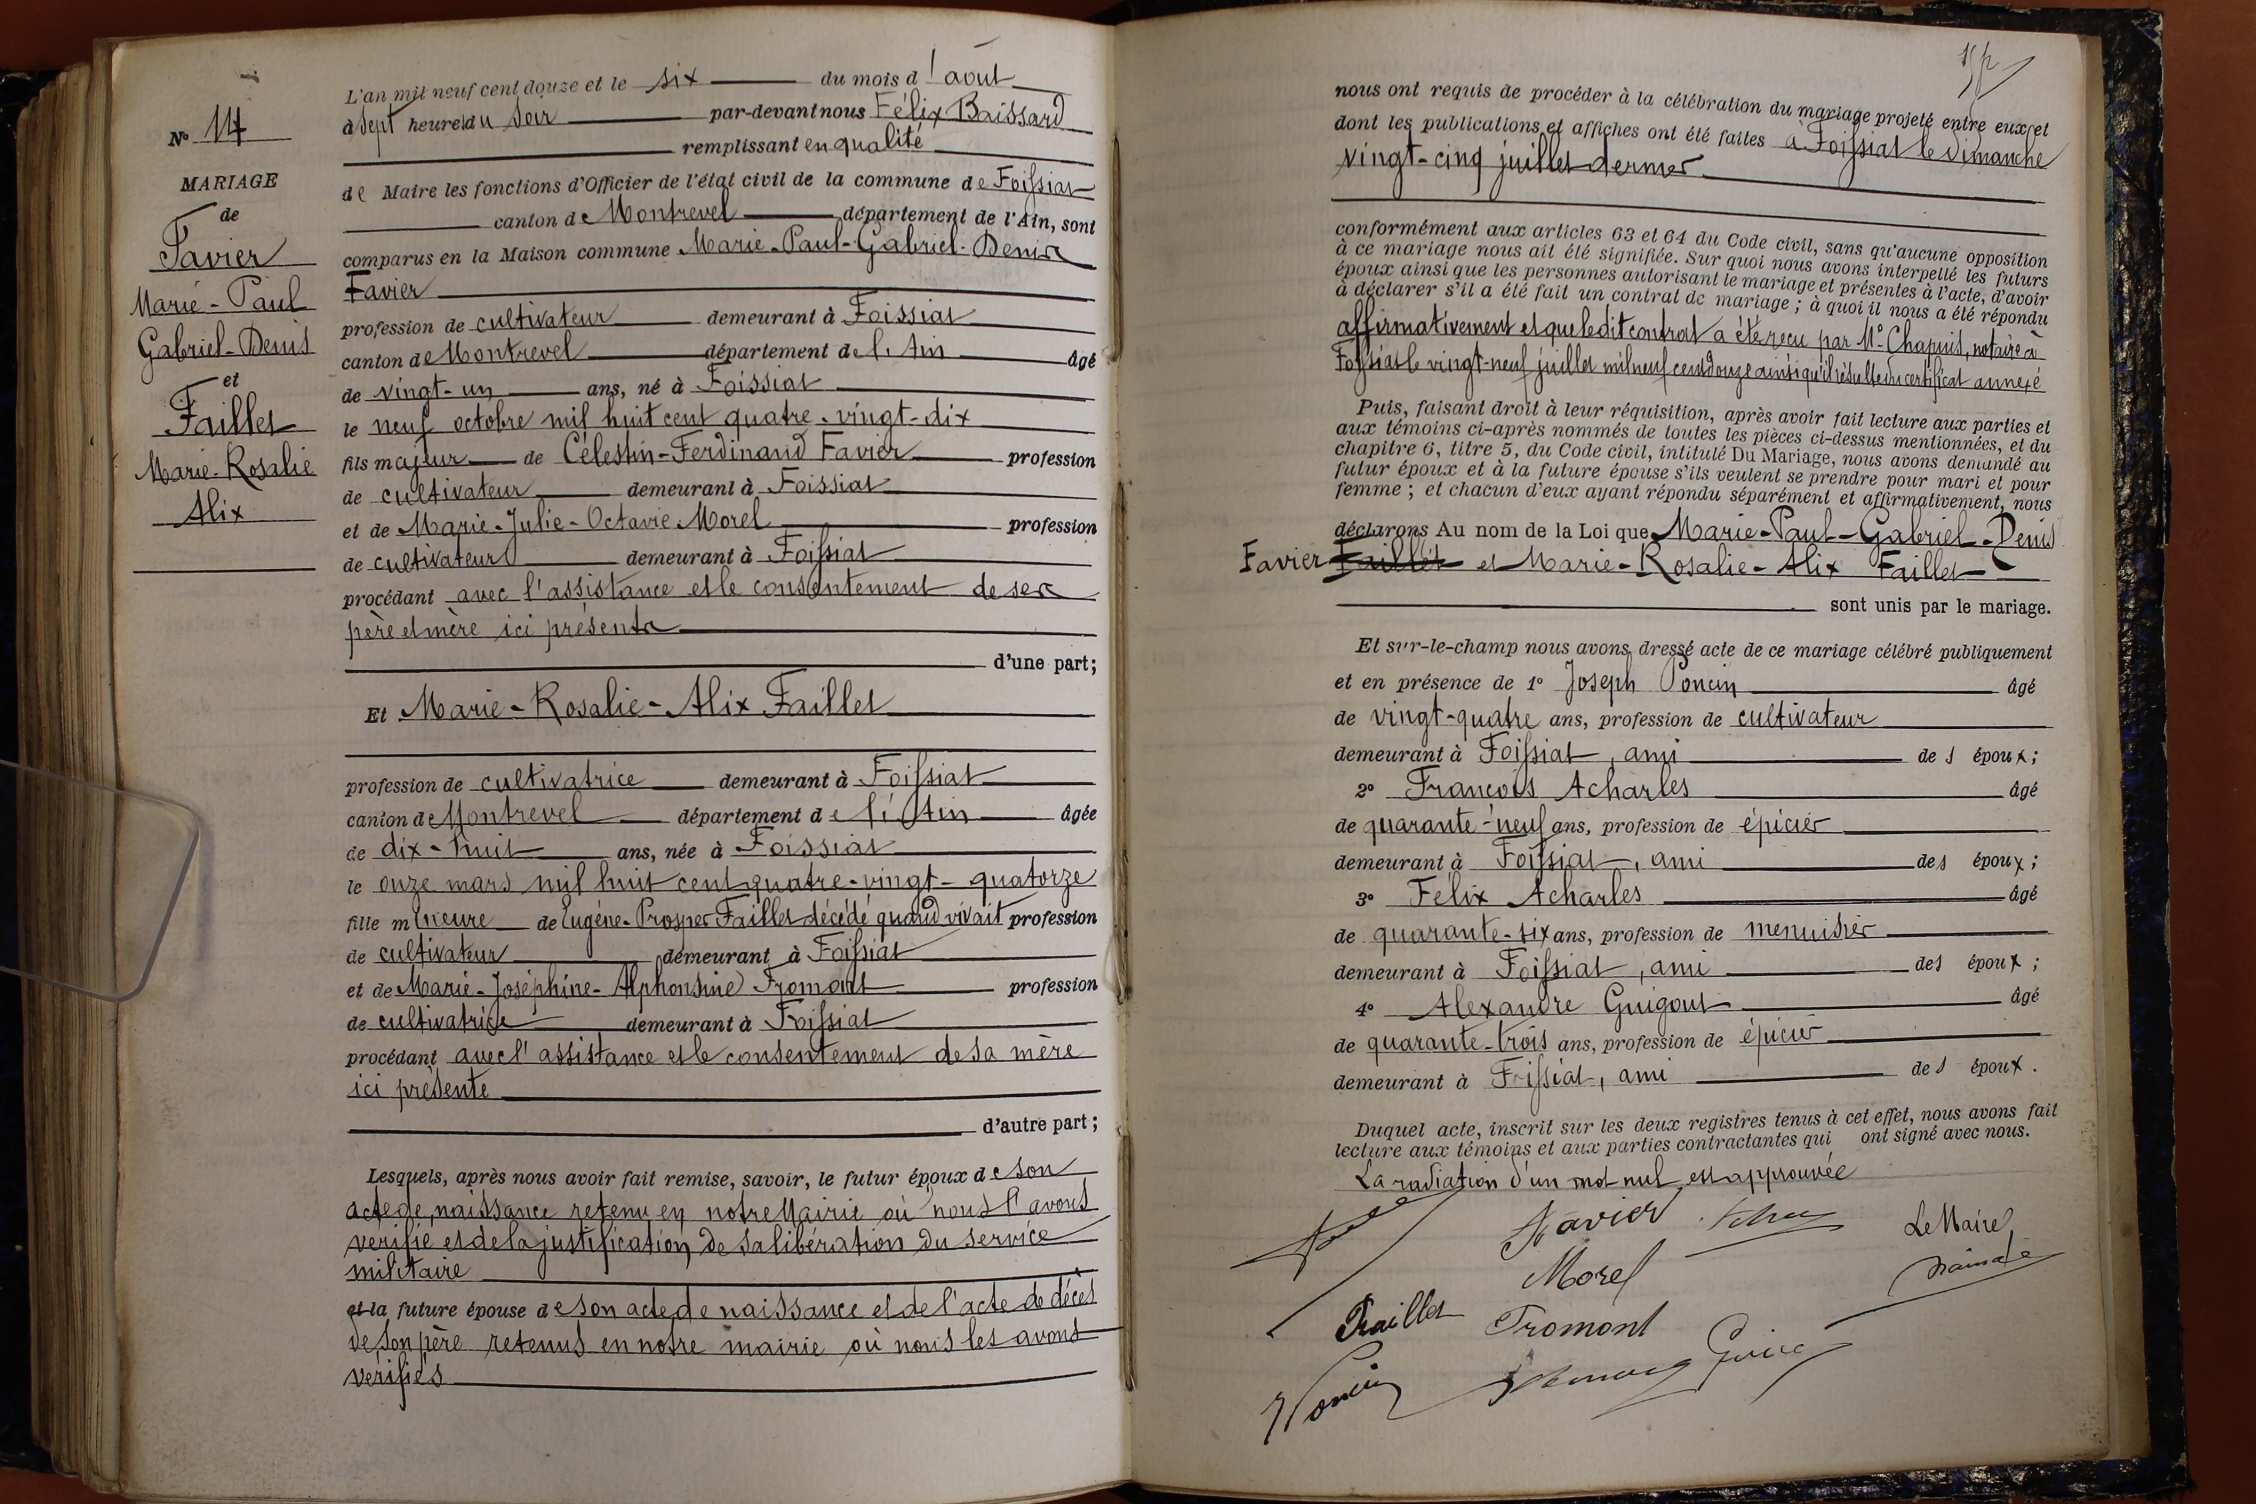 N° 14
MARIAGE
de
Favier
Marie-Paul
Gabriel-Denis
et
Faillet
Marie-Rosalie
Alix
L'an mil neuf cent douze et le six du mois d'août
à sept heures du soir par-devant nous Félix Baissard
remplissant en qualité
de Maire les fonctions d'Officier de l'état civil de la commune de Foissiat
canton de Montrevel département de l'Ain, sont
comparus en la Maison commune Marie-Paul-Gabriel-Denis
Favier
profession de cultivateur demeurant à Foissiat
canton de Montrevel département de l'Ain âgé
de vingt-un ans, né à Foissiat
le neuf octobre mil huit cent quatre-vingt-dix
fils majeur de Célestin-Ferdinand Favier profession
de cultivateur demeurant à Foissiat
et de Marie-Julie-Octavie Morel profession
de cultivateurs demeurant à Foissiat
procédant avec l'assistance et le consentement de ses
père et mère ici présents
d'une part;
Et Marie-Rosalie-Alix Faillet
profession de cultivatrice demeurant à Foissiat
canton de Montrevel département de l'Ain âgée
de dix-huit ans, née à Foissiat
le onze mars mil huit cent quatre-vingt-quatorze
fille mineure de Eugène-Prosper Faillet décédé quand vivait profession
de cultivateur demeurant à Foissiat
et de Marie-Joséphine-Alphonsine Fromont profession
de cultivatrice demeurant à Foissiat
procédant avec l'assistance et le consentement de sa mère
ici présente
d'autre part;
Lesquels, après nous avoir fait remise, savoir, le futur époux de son
acte de naissance retenu en notre Mairie où nous l'avons
vérifié et de la justification de sa libération du service
militaire
et la future épouse de son acte de naissance et de l'acte de décès
de son père retenus en notre mairie où nous les avons
vérifiés
nous ont requis de procéder à la célébration du mariage projeté entre eux et
dont les publications et affiches ont été faites à Foissiat le dimanche
vingt-cinq juillet dernier
conformément aux articles 63 et 64 du Code civil, sans qu'aucune opposition
à ce mariage nous ait été signifiée. Sur quoi nous avons interpellé les futurs
époux ainsi que les personnes autorisant le mariage et présentes à l'acte, d'avoir
à déclarer s'il a été fait un contrat de mariage; à quoi il nous a été répondu
affirmativement et que ledit contrat a été reçu par Me Chapuis, notaire à
Foissiat le vingt-neuf juillet mil neuf cent douze ainsi qu'il résulte du certificat annexé
Puis, faisant droit à leur réquisition, après avoir fait lecture aux parties et
aux témoins ci-après nommés de toutes les pièces ci-dessus mentionnées, et du
chapitre 6, titre 5, du Code civil, intitulé Du Mariage, nous avons demandé au
futur époux et à la future épouse s'ils veulent se prendre pour mari et pour
femme; et chacun d'eux ayant répondu séparément et affirmativement, nous
déclarons Au nom de la Loi que Marie-Paul-Gabriel-Denis
Favier Faillet et Marie-Rosalie-Alix Faillet
sont unis par le mariage.
Et sur-le-champ nous avons dressé acte de ce mariage célébré publiquement
et en présence de 1° Joseph Poncin âgé
de vingt-quatre ans, profession de cultivateur
demeurant à Foissiat, ami des époux;
2° François Acharles âgé
de quarante-neuf ans, profession de épicier
demeurant à Foissiat, ami des époux;
3° Félix Acharles âgé
de quarante-six ans, profession de menuisier
demeurant à Foissiat, ami des époux;
4° Alexandre Guigout âgé
de quarante-trois ans, profession de épicier
demeurant à Foissiat, ami des époux.
Duquel acte, inscrit sur les deux registres tenus à cet effet, nous avons fait
lecture aux témoins et aux parties contractantes qui ont signé avec nous.
La radiation d'un mot nul est approuvée
Favier
Le Maire
Morel
Faillet Fromont
Poncin